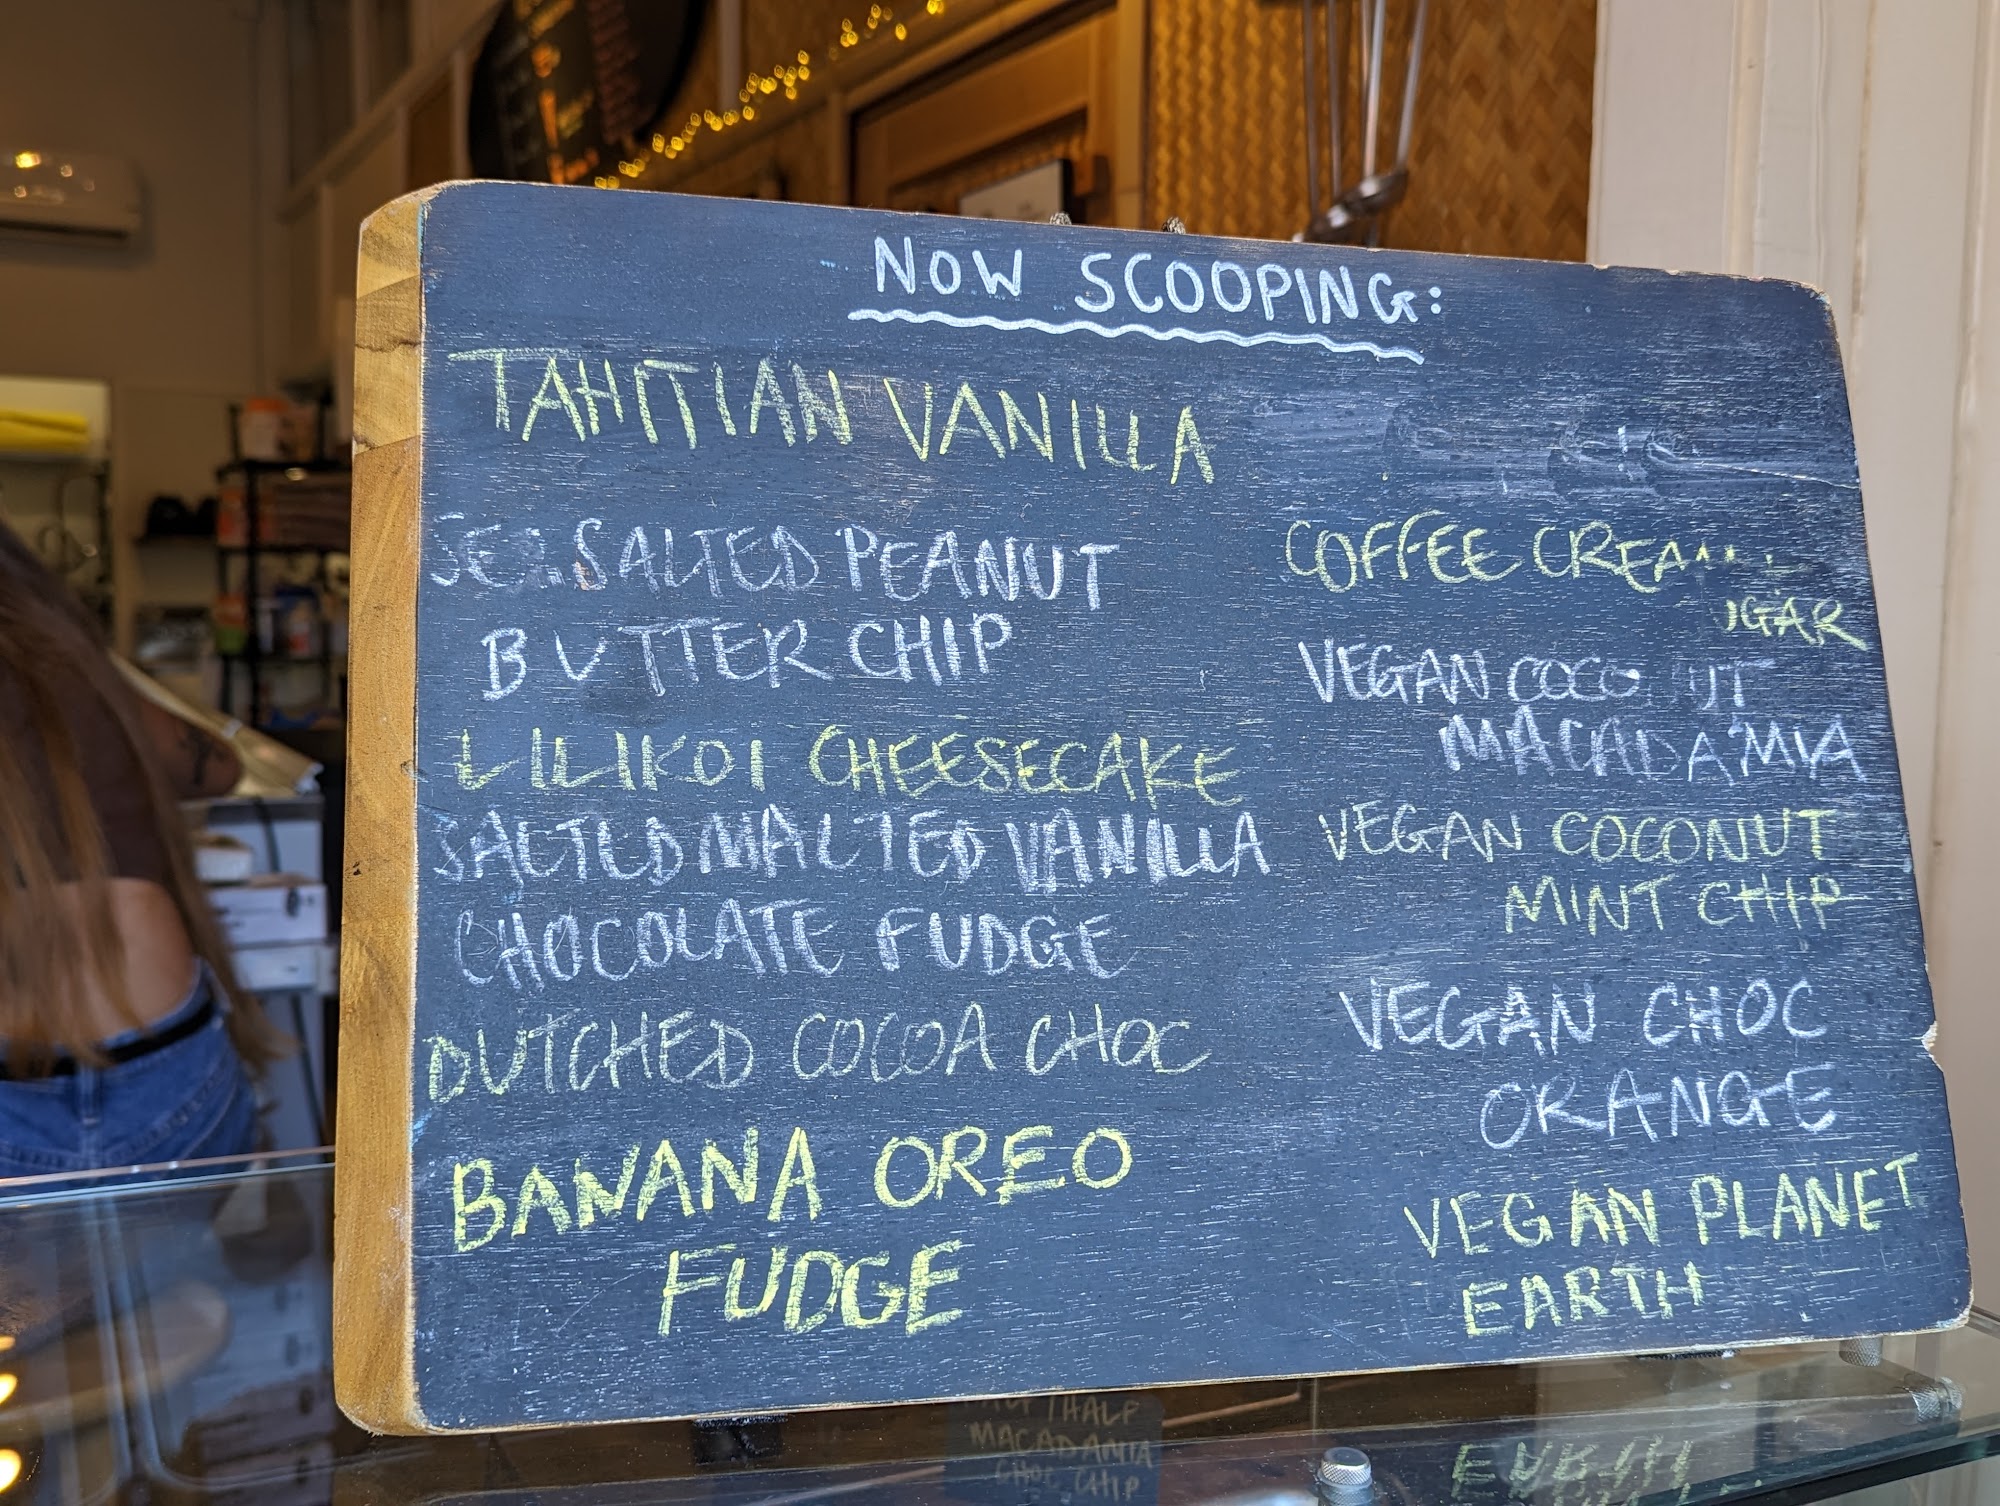 NOW SCOOPING:
TAHITIAN VANILLA
SEA SALTED PEANUT
BUTTER CHIP
LILIKOI CHEESECAKE
SALTED MALTED VANILLA
CHOCOLATE FUDGE
DUTCHED COCOA CHOC
BANANA OREO
FUDGE
COFFEE
VEGAN COCONUT
MACADAMIA
VEGAN COCONUT
MINT CHIP
VEGAN CHOC
ORANGE
VEGAN PLANET
EARTH
MACADAMIA
CHOC CHIP